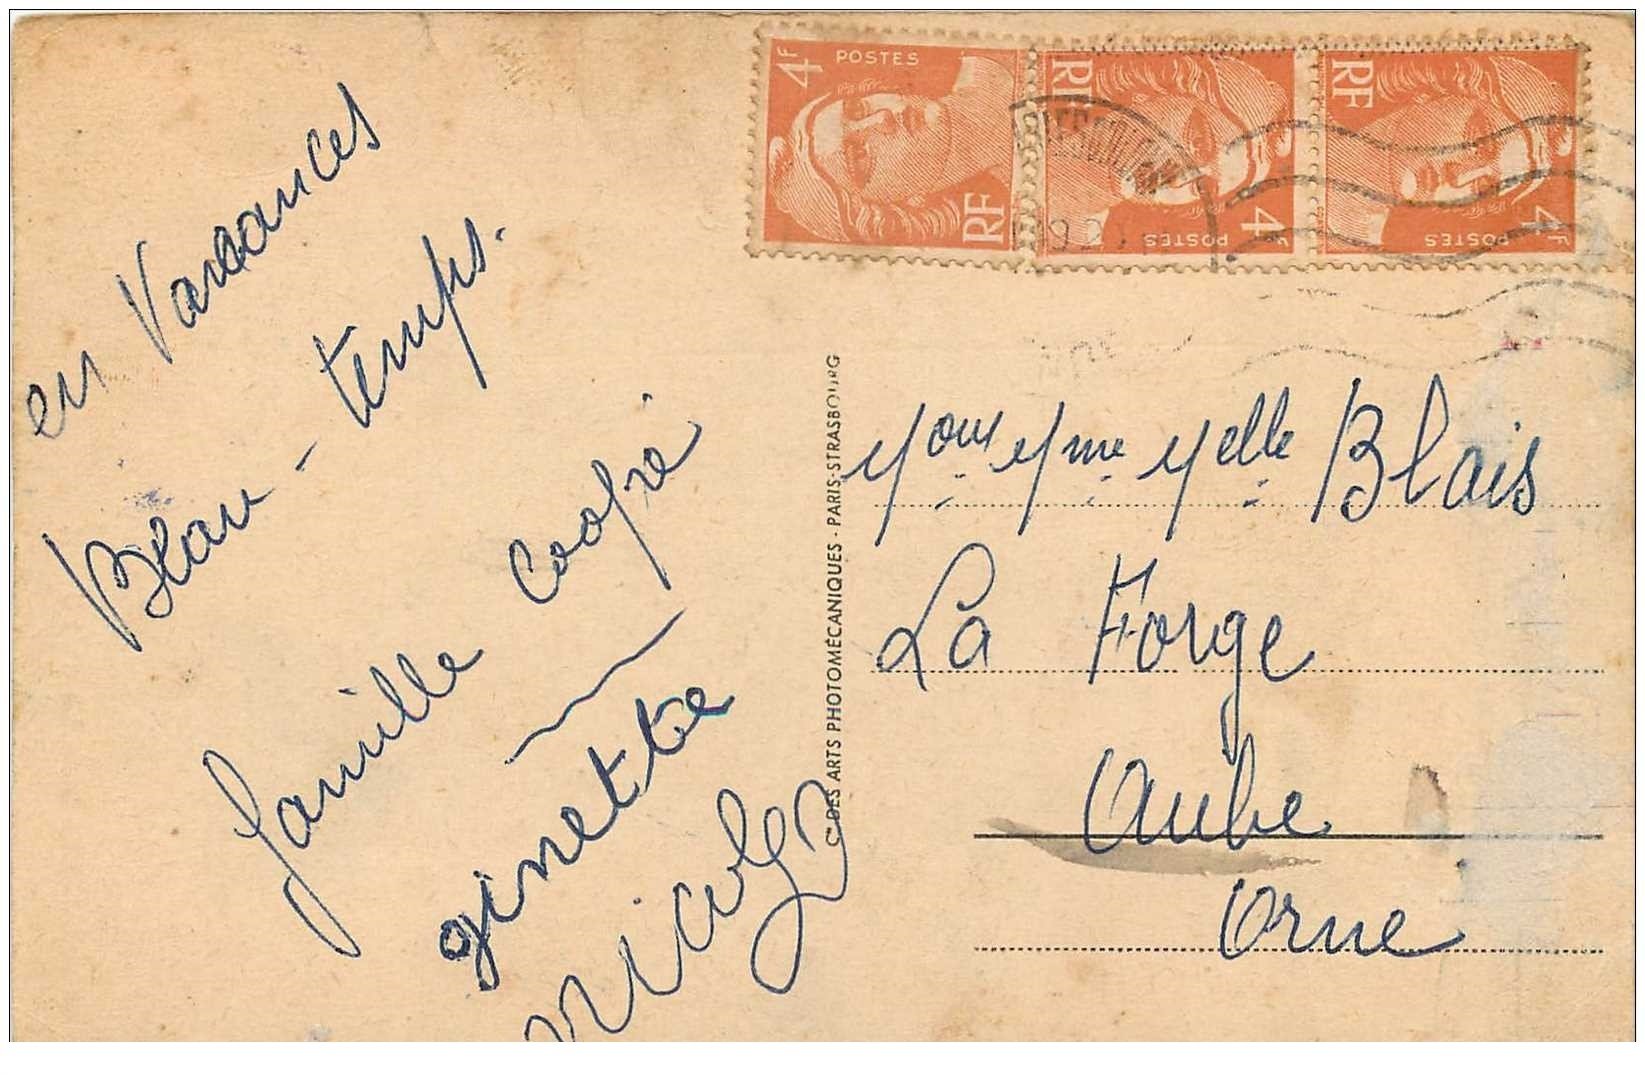 en Vacances
Beau - temps.
famille
ginette
nicole
4F POSTES RF
RF POSTES 4F
RF POSTES 4F
Cie DES ARTS PHOTOMÉCANIQUES - PARIS-STRASBOURG
Mme Melle Blais
La Forge
Aube
Orne